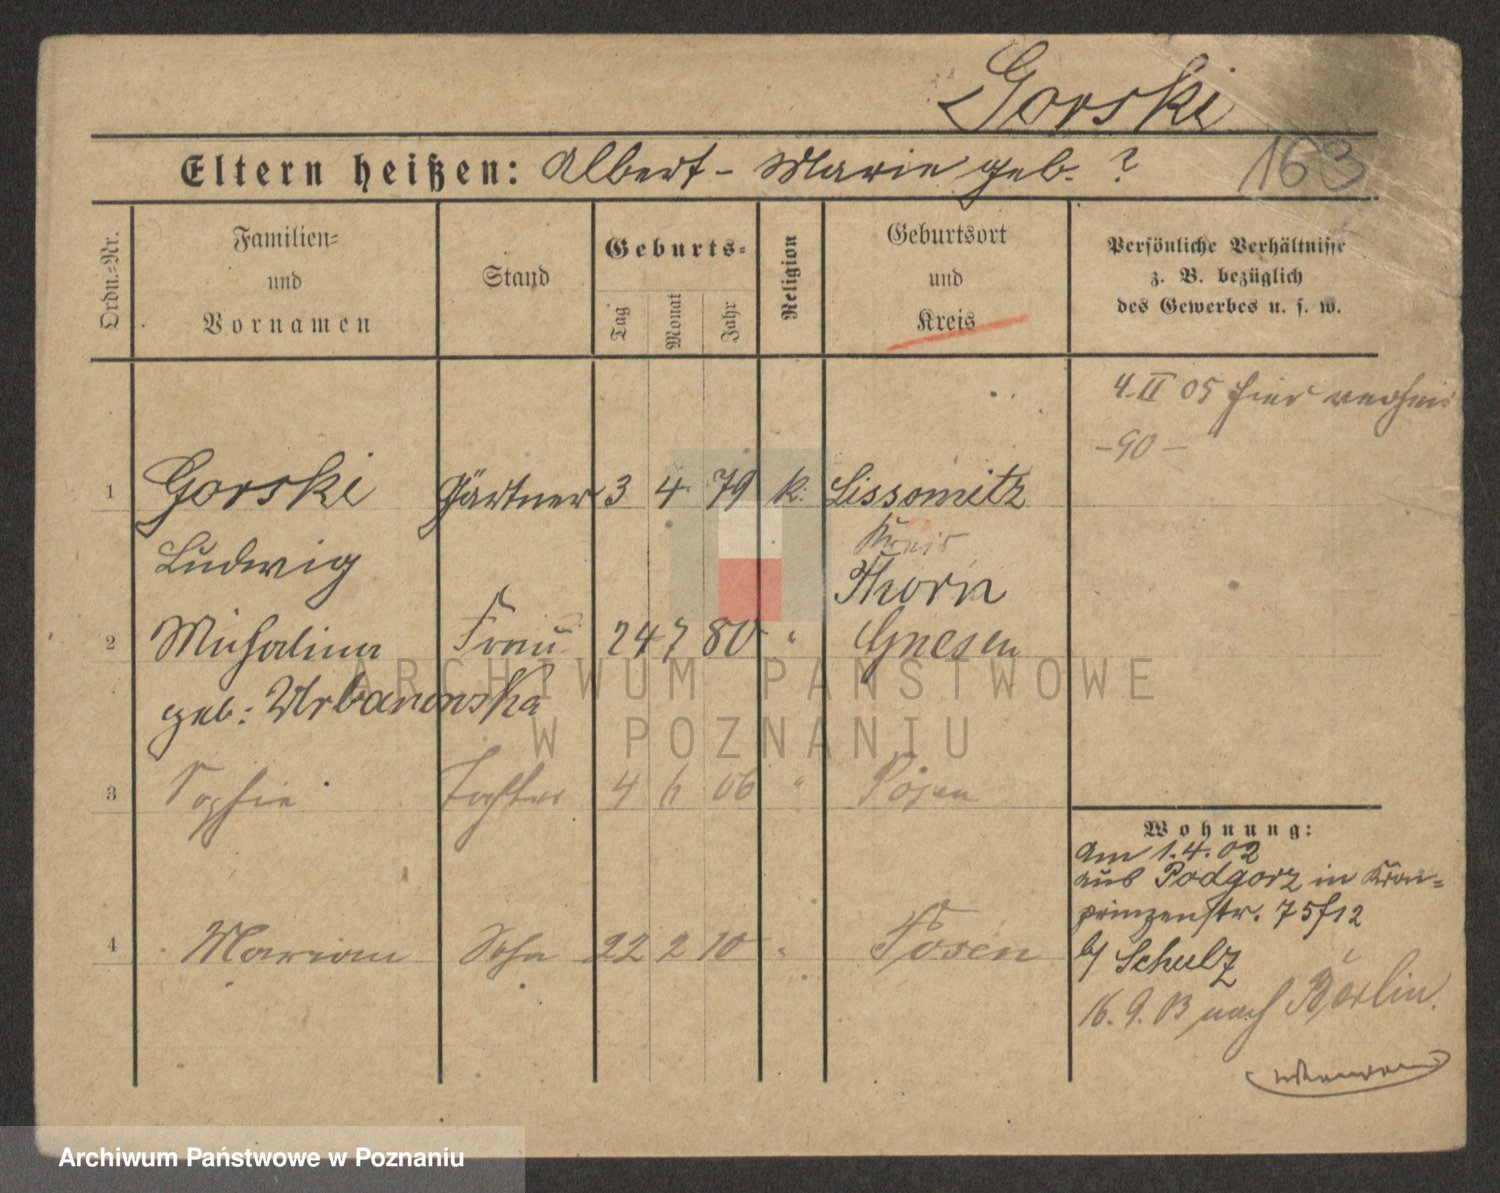 Gorski
Eltern heißen: Albert - Marie geb. ?
163
Ordn.=Nr.
Familien=
und
Vornamen
Stand
Geburts=
Tag
Monat
Jahr
Religion
Geburtsort
und
Kreis
Persönliche Verhältnisse
z. B. bezüglich
des Gewerbes u. s. w.
4. II 05 hier verhei
- 90 -
1 Gorski Gärtner 3 4 79 k. Lissomitz
Ludwig
Kreis
Thorn
2 Michalina Frau 24 7 80 " Gnesen
geb: Urbanowska
3 Sophie Tochter 4 06 " Posen
4 Marian Sohn 22 2 10 " Posen
Wohnung:
Am 1.4.02
aus Podgorz in Kron=
prinzenstr. 75 12
b/ Schulz
16.9.03 nach Berlin.
ARCHIWUM PAŃSTWOWE
W POZNANIU
Archiwum Państwowe w Poznaniu